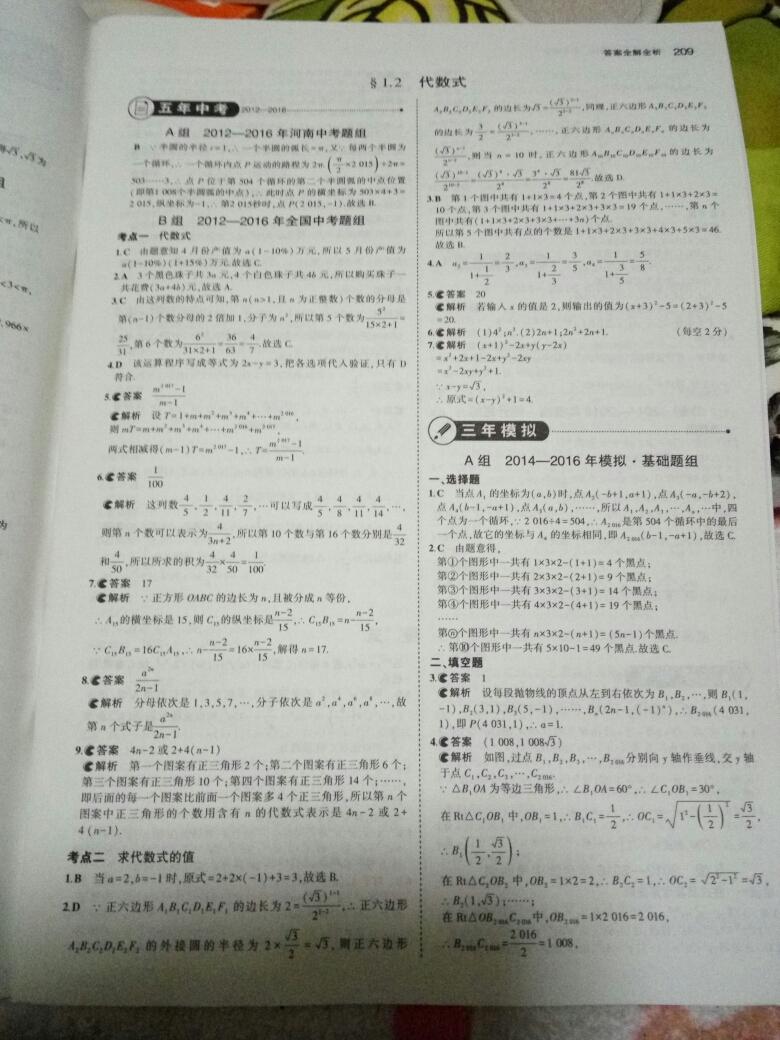 答案全解全析 209
§1.2 代数式
五年中考 2012—2016
A组 2012—2016年河南中考题组
B ∵半圆的半径r=1,∴一个半圆的弧长=π,又∵每两个半圆为
一个循环,∴一个循环内点P运动的路程为2π.(π/2×2 015)÷2π=
503……3,∴点P位于第504个循环的第二个半圆弧的中点位置
(即第1 008个半圆弧的中点),∴此时点P的横坐标为503×4+3=
2 015,纵坐标为-1,∴第2 015秒时,点P(2 015,-1).故选B.
B组 2012—2016年全国中考题组
考点一 代数式
1.C 由题意知4月份产值为a(1-10%)万元,所以5月份产值为
a(1-10%)(1+15%)万元.故选C.
2.A 3个黑色珠子共3a元,4个白色珠子共4b元,所以购买珠子一
共花费(3a+4b)元,故选A.
3.C 由这列数的特点可知,第n(n>1,且n为正整数)个数的分母是
第(n-1)个数分母的2倍加1,分子为n²,所以第5个数为5²/(15×2+1)=
25/31,第6个数为6²/(31×2+1)=36/63=4/7.故选C.
4.D 该运算程序写成等式为2x-y=3,把各选项代入验证,只有D
符合.
5.答案 (m²⁰¹⁷-1)/(m-1)
解析 设T=1+m+m²+m³+m⁴+…+m²⁰¹⁶,
则mT=m+m²+m³+m⁴+…+m²⁰¹⁶+m²⁰¹⁷,
两式相减得(m-1)T=m²⁰¹⁷-1,∴T=(m²⁰¹⁷-1)/(m-1).
6.答案 1/100
解析 这列数4/5,1/2,4/11,2/7,…可以写成4/5,4/8,4/11,4/14,…,
则第n个数可以表示为4/(3n+2),所以第10个数与第16个数分别是4/32
和4/50,所以所求的积为4/32×4/50=1/100.
7.答案 17
解析 ∵正方形OABC的边长为n,且被分成n等份,
∴A₁₅的横坐标是15,则C₁₅的纵坐标是(n-2)/15,∴C₁₅B₁₅=n-(n-2)/15,
∵C₁₅B₁₅=16C₁₅A₁₅,∴n-(n-2)/15=16×(n-2)/15,解得n=17.
8.答案 a²ⁿ/(2n-1)
解析 分母依次是1,3,5,7,…,分子依次是a²,a⁴,a⁶,a⁸,…,故
第n个式子是a²ⁿ/(2n-1).
9.答案 4n-2或2+4(n-1)
解析 第一个图案有正三角形2个;第二个图案有正三角形6个;
第三个图案有正三角形10个;第四个图案有正三角形14个;……,
即后面的每一个图案比前面一个图案多4个正三角形,所以第n个
图案中正三角形的个数用含有n的代数式表示是4n-2或2+
4(n-1).
考点二 求代数式的值
1.B 当a=2,b=-1时,原式=2+2×(-1)+3=3,故选B.
2.D ∵正六边形A₁B₁C₁D₁E₁F₁的边长为2=(√3)¹⁻¹/2¹⁻²,∴正六边形
A₂B₂C₂D₂E₂F₂的外接圆的半径为2×√3/2=√3,则正六边形
A₂B₂C₂D₂E₂F₂的边长为√3=(√3)²⁻¹/2²⁻²,同理,正六边形A₃B₃C₃D₃E₃F₃
的边长为3/2=(√3)³⁻¹/2³⁻²,……,正六边形AₙBₙCₙDₙEₙFₙ的边长为
(√3)ⁿ⁻¹/2ⁿ⁻²,则当n=10时,正六边形A₁₀B₁₀C₁₀D₁₀E₁₀F₁₀的边长为
(√3)¹⁰⁻¹/2¹⁰⁻²=(√3)⁸·√3/2⁸=3⁴·√3/2⁸=81√3/2⁸.故选D.
3.B 第1个图中共有1+1×3=4个点,第2个图中共有1+1×3+2×3=
10个点,第3个图中共有1+1×3+2×3+3×3=19个点,……,第n个
图中共有(1+1×3+2×3+3×3+…+3n)个点.
所以第5个图中共有点的个数是1+1×3+2×3+3×3+4×3+5×3=46.
故选B.
4.A a₂=1/(1+1/2)=2/3,a₃=1/(1+2/3)=3/5,a₄=1/(1+3/5)=5/8.
5.答案 20
解析 若输入x的值是2,则输出的值为(x+3)²-5=(2+3)²-5
=20.
6.解析 (1)4²;n².(2)2n+1;2n²+2n+1. (每空2分)
7.解析 (x+1)²-2x+y(y-2x)
=x²+2x+1-2x+y²-2xy
=x²-2xy+y²+1.
∵x-y=√3,
∴原式=(x-y)²+1=4.
三年模拟
A组 2014—2016年模拟·基础题组
一、选择题
1.C 当点A₁的坐标为(a,b)时,点A₂(-b+1,a+1),点A₃(-a,-b+2),
点A₄(b-1,-a+1),点A₅(a,b),……,所以A₁,A₂,A₃,…,Aₙ,…中,四
个点为一个循环,∵2 016÷4=504,∴A₂₀₁₆是第504个循环中的最后
一个点,故它的坐标与A₄的坐标相同,即A₂₀₁₆(b-1,-a+1),故选C.
2.C 由题意得,
第①个图形中一共有1×3×2-(1+1)=4个黑点;
第②个图形中一共有2×3×2-(2+1)=9个黑点;
第③个图形中一共有3×3×2-(3+1)=14个黑点;
第④个图形中一共有4×3×2-(4+1)=19个黑点;
……
第ⓝ个图形中一共有n×3×2-(n+1)=(5n-1)个黑点.
∴第⑩个图形中一共有5×10-1=49个黑点.故选C.
二、填空题
3.答案 1
解析 设每段抛物线的顶点从左到右依次为B₁,B₂,…,则B₁(1,
-1),B₂(3,1),B₃(5,-1),……,Bₙ(2n-1,(-1)ⁿ),∴B₂₀₁₆(4 031,
1),即P(4 031,1),∴a=1.
4.答案 (1 008,1 008√3)
解析 如图,过点B₁,B₂,B₃,…,B₂₀₁₆分别向y轴作垂线,交y轴
于点C₁,C₂,C₃,…,C₂₀₁₆.
∵△B₁OA为等边三角形,∴∠B₁OA=60°,∴∠C₁OB₁=30°,
在Rt△C₁OB₁中,OB₁=1,∴B₁C₁=1/2,∴OC₁=√(1²-(1/2)²)=√3/2,
∴B₁(1/2,√3/2);
在Rt△C₂OB₂中,OB₂=1×2=2,∴B₂C₂=1,∴OC₂=√(2²-1²)=√3,
∴B₂(1,√3);……;
在Rt△OB₂₀₁₆C₂₀₁₆中,OB₂₀₁₆=1×2 016=2 016,
∴B₂₀₁₆C₂₀₁₆=2 016/2=1 008,